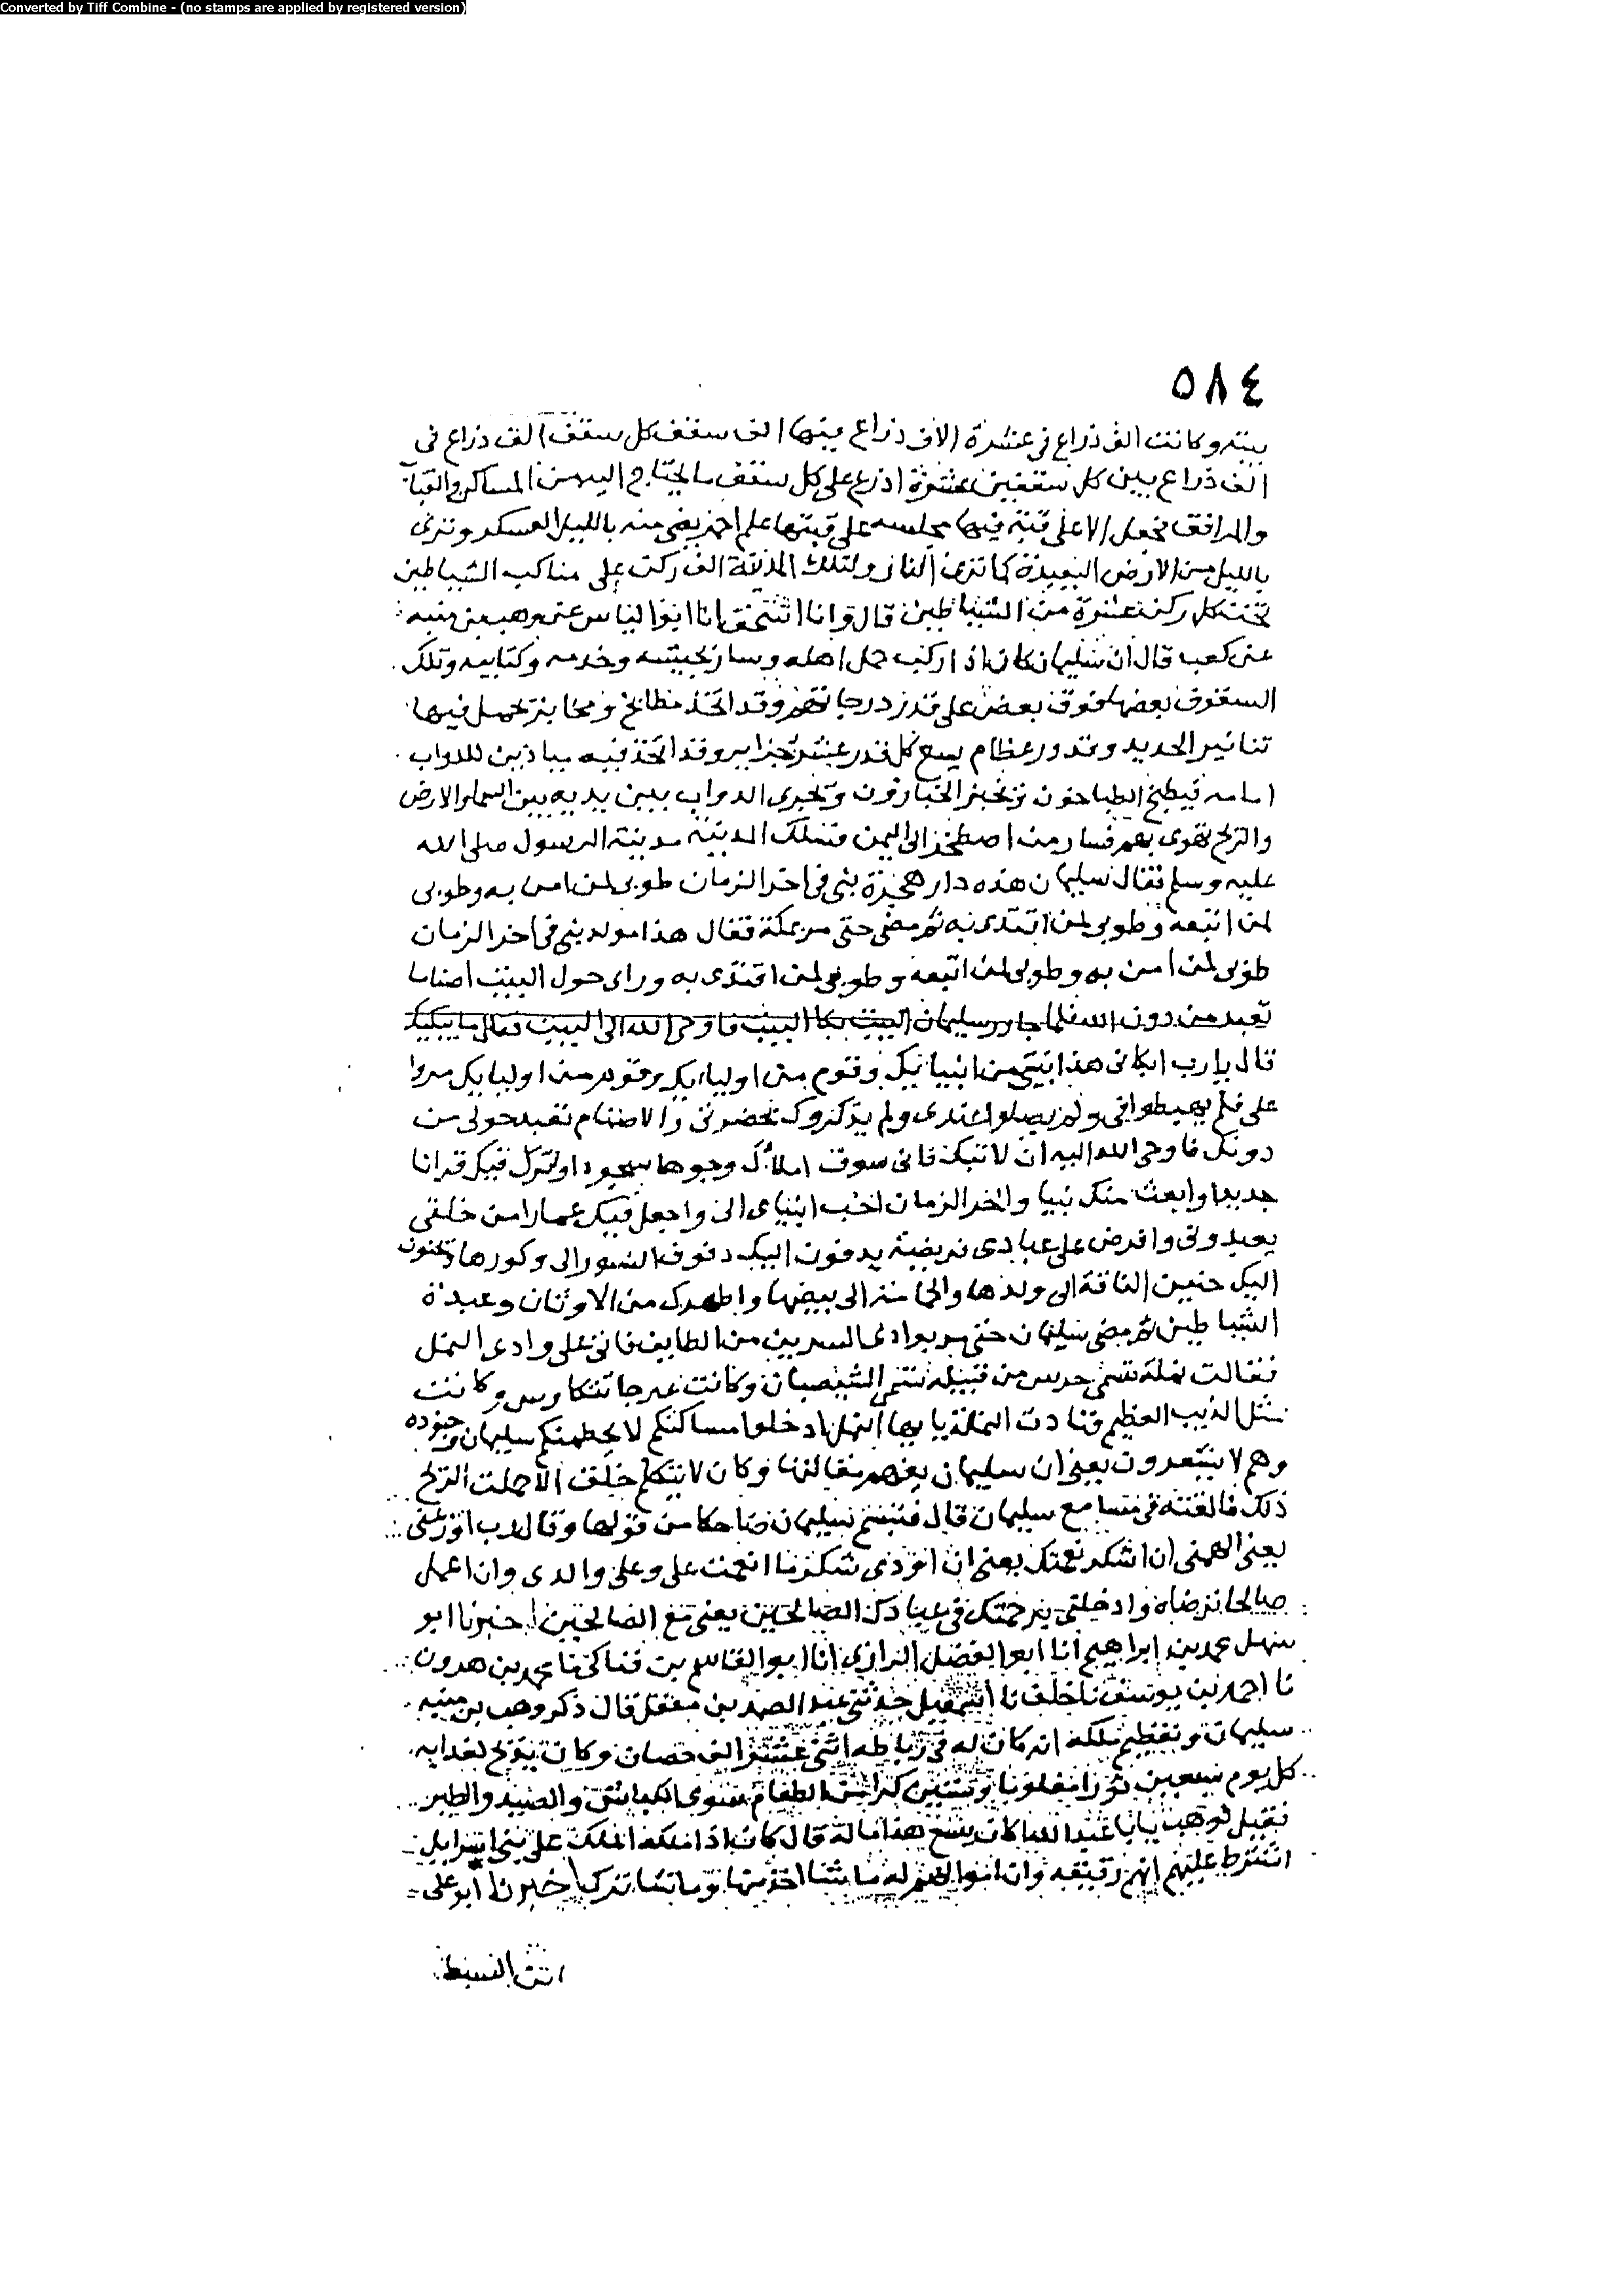 Converted by Tiff Combine - (no stamps are applied by registered version)
٥٨٤
وكانت الف ذراع في عشرة الاف ذراع الف سقف كل سقف الف ذراع في
الف ذراع بين كل سقفين عشرة اذرع على كل سقف ما يحتاج اليه من المساكن والقباب
والمرافق فجعل الاعلى قبة فيها مجلسه على قبتها علم احمر يضي منه بالليل العسكر وترى
بالليل من الارض البعيدة كما ترى النار ولتلك المدينة الف ركن على مناكب الشياطين
تحت كل ركن عشرة من الشياطين قال وانا اسحق انا ابو الياس عن وهب بن منبه
عن كعب قال ان سليمان كان اذا ركب حمل اهله وساير حشمه وخدمه وكتابه وتلك
السقوف بعضها فوق بعض على قدر درجاتهم وقد اتخذ مطابخ ومخابز تحمل فيها
تنانير الحديد وقدور عظام يسع كل قدر عشر جزاير وقد اتخذ ميادين للدواب
امامه فيطبخ الطباخون ويخبز الخبازون وتجري الدواب بين يديه بين السما والارض
والريح تهوى بهم فسار من اصطخر الى اليمن فسلك المدينة مدينة الرسول صلى الله
عليه وسلم فقال سليمان هذه دار هجرة نبي في اخر الزمان طوبى لمن امن به وطوبى
لمن اتبعه وطوبى لمن اقتدى به ثم مضى حتى مر بمكة فقال هذا مولد نبي في اخر الزمان
طوبى لمن امن به وطوبى لمن اتبعه وطوبى لمن اقتدى به وراى حول البيت اصناما
تعبد من دون الله فلما جاوز سليمان البيت بكا البيت فاوحى الله الى البيت فقال ما يبكيك
قال يا رب ابكاني هذا نبي من انبيائك وقوم من اوليايك وقوم من اوليايك مروا
على فلم يهبطوا في ولم يصلوا عندي ولم يذكروك بحضرتي والاصنام تعبد حولي من
دونك فاوحى الله اليه ان لا تبك فاني سوف املأك وجوها سجودا وانزل فيك قرانا
جديدا وابعث منك نبيا في اخر الزمان احب انبياى الى واجعل فيك عمارا من خلقي
يعبدوني وافرض على عبادي فريضة يدفون اليك دفوف النسور الى وكورها ويحنون
اليك حنين الناقة الى ولدها والحمامة الى بيضها واطهرك من الاوثان وعبدة
الشياطين ثم مضى سليمان حتى مر بوادى السدير من الطايف فاتى على وادى النمل
فقالت نملة تسمى حرس من قبيلة تسمى الشيصبان وكانت عرجا تتكاوس وكانت
مثل الذيب العظيم فنادت النملة يا ايها النمل ادخلوا مساكنكم لا يحطمنكم سليمان وجنوده
وهم لا يشعرون يعني ان سليمان يفهم مقالتها وكان لا يتكلم خلق الا حملت الريح
ذلك فالقته في مسامع سليمان قال فتبسم سليمان ضاحكا من قولها وقال رب اوزعني
يعني الهمني ان اشكر نعمتك يعني ان اودي شكر ما انعمت على وعلى والدى وان اعمل
صالحا ترضاه وادخلني برحمتك في عبادك الصالحين يعني مع الصالحين اخبرنا ابو
سهل محمد بن ابراهيم انا ابو الفضل الرازي انا ابو القاسم بن فناكي نا محمد بن هرون
نا احمد بن يوسف نا خلف نا اسمعيل حدثني عبد الصمد بن معقل قال ذكر وهب بن منبه
سليمان وتعظيم ملكه انه كان له في رباطه اثني عشر الف حصان وكان يذبح لغدايه
كل يوم سبعين ثورا معلوفا وستين كرا من الطعام سوى الكباش والصيد والطير
فقيل لوهب يابا عبد الله اكان يسع هذا ماله قال كان اذا ملك الملك على بني اسرايل
اشترط عليهم انهم رقيقه وان اموالهم له ما شا اخذ منها وما شا ترك اخبرنا ابو على